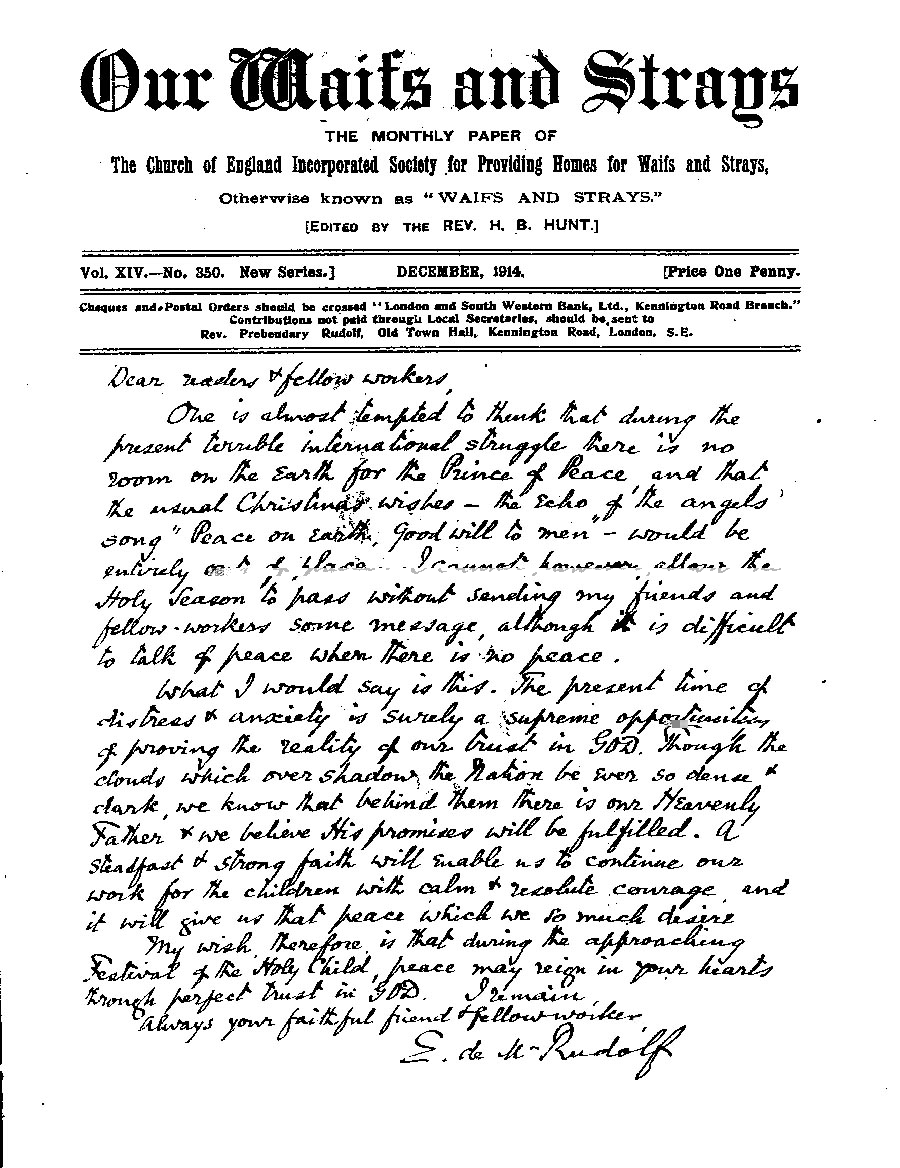 Our Waifs and Strays
THE MONTHLY PAPER OF
The Church of England Incorporated Society for Providing Homes for Waifs and Strays,
Otherwise known as "WAIFS AND STRAYS."
[EDITED BY THE REV. H. B. HUNT.]
Vol. XIV.—No. 350. New Series.] DECEMBER, 1914. [Price One Penny.
Cheques and Postal Orders should be crossed "London and South Western Bank, Ltd., Kennington Road Branch."
Contributions not paid through Local Secretaries, should be sent to
Rev. Prebendary Rudolf, Old Town Hall, Kennington Road, London, S.E.
Dear readers & fellow workers,
One is almost tempted to think that during the
present terrible international struggle there is no
room on the Earth for the Prince of Peace, and that
the usual Christmas wishes – the Echo of the angels'
song "Peace on Earth, Good will to men" – would be
entirely out of place. I cannot, however, allow the
Holy Season to pass without sending my friends and
fellow-workers some message, although it is difficult
to talk of peace when there is no peace.
What I would say is this. The present time of
distress & anxiety is surely a supreme opportunity
of proving the reality of our trust in GOD. Though the
clouds which over shadow the Nation be ever so dense &
dark, we know that behind them there is our Heavenly
Father & we believe His promises will be fulfilled. A
steadfast & strong faith will enable us to continue our
work for the children with calm & resolute courage, and
it will give us that peace which we so much desire
My wish, therefore, is that during the approaching
Festival of the Holy Child, peace may reign in your hearts
through perfect trust in GOD. I remain,
Always your faithful friend & fellow worker
E. de M. Rudolf